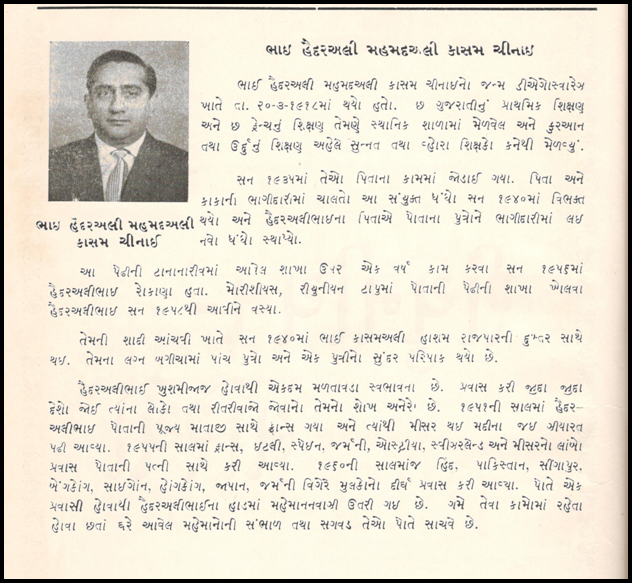 ભાઇ હૈદરઅલી મહમદઅલી કાસમ ચીનાઇ
ભાઈ હૈદરઅલી મહમુદઅલી કાસમ ચીનાઇનો જન્મ ડીએગોસ્વારેઝ
ખાતે તા. ૨૦-૩-૧૯૧૮માં થયો હતો. છ ગુજરાતીનું પ્રાથમિક શિક્ષણ
અને છ ફ્રેન્ચનું શિક્ષણ તેમણે સ્થાનિક શાળામાં મેળવેલ અને કુરઆન
તથા ઉર્દુનું શિક્ષણ અહેલે સુન્નત તથા વ્હોરા શિક્ષકો કનેથી મેળવ્યું.
સન ૧૯૩૫માં તેઓ પિતાના કામમાં જોડાઈ ગયા. પિતા અને
કાકાની ભાગીદારીમાં ચાલતો આ સંયુક્ત ધંધો સન ૧૯૪૦માં વિભક્ત
થયો અને હૈદરઅલીભાઇના પિતાએ પોતાના પુત્રોને ભાગીદારીમાં લઇ
નવો ધંધો સ્થાપ્યો.
ભાઇ હૈદરઅલી મહમુદઅલી
કાસમ ચીનાઈ
આ પેઢીની ટાનાનારીવમાં આવેલ શાખા ઉપર એક વર્ષ કામ કરવા સન ૧૯૫૬માં
હૈદરઅલીભાઇ રોકાણા હતા. મોરીશીયસ, રીયુનીયન ટાપુમાં પોતાની પેઢીની શાખા ખોલવા
હૈદરઅલીભાઇ સન ૧૯૫૮થી આવીને વસ્યા.
તેમની શાદી આંચવી ખાતે સન ૧૯૪૦માં ભાઈ કાસમઅલી હાશમ રાજપારની દુખ્તર સાથે
થઇ. તેમના લગ્ન બગીચામાં પાંચ પુત્રો અને એક પુત્રીનો સુંદર પરિપાક થયો છે.
હૈદરઅલીભાઈ ખુશમીજાજ હોવાથી એકદમ મળતાવડા સ્વભાવના છે. પ્રવાસ કરી જુદા જુદા
દેશો જોઈ ત્યાંના લોકો તથા રીતરીવાજો જોવાનો તેમનો શોખ અનેરો છે. ૧૯૫૧ની સાલમાં હૈદર-
અલીભાઇ પોતાની પૂજ્ય માતાજી સાથે ફ્રાન્સ ગયા અને ત્યાંથી મીસર થઇ મદીના જઇ ઝીયારત
પઢી આવ્યા. ૧૯૫૫ની સાલમાં ફ્રાન્સ, ઇટલી, સ્પેઇન, જર્મની, ઓસ્ટ્રીયા, સ્વીઝરલેન્ડ અને મીસરનો લાંબો
પ્રવાસ પોતાની પત્ની સાથે કરી આવ્યા. ૧૯૬૦ની સાલમાંજ હિંદ, પાકિસ્તાન, સીંગાપુર,
બેંગકોંગ, સાઇગોંન, હોંગકોંગ, જાપાન, જર્મની વિગેરે મુલકોનો દીર્ઘ પ્રવાસ કરી આવ્યા. પોતે એક
પ્રવાસી હોવાથી હૈદરઅલીભાઈના હાડમાં મહેમાનનવાઝી ઉતરી ગઇ છે. ગમે તેવા કામોમાં રહેતા
હોવા છતાં ઘરે આવેલ મહેમાનોની સંભાળ તથા સગવડ તેઓ પોતે સાચવે છે.